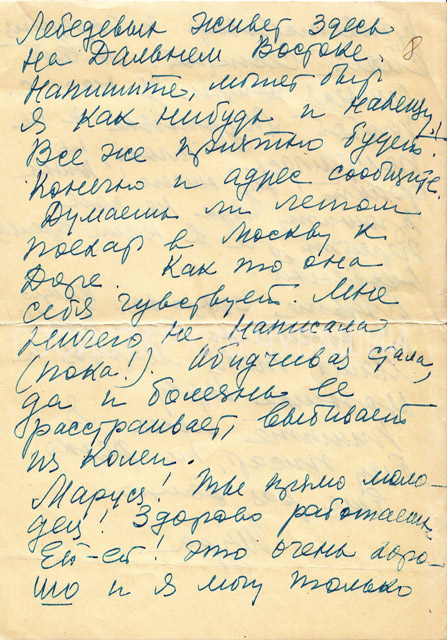 Лебедевых живет здесь
8
на Дальнем Востоке.
Напишите, может быть
я как нибудь и навещу!
Все же приятно будет.
Конечно и адрес сообщите.
Думаешь ли летом
поехать в Москву к
Доре. Как то она
себя чувствует. Мне
ничего не написала
(пока!). Обидчивая стала,
да и болезнь ее
расстраивает, выбивает
из колеи.
Маруся! Ты прямо моло-
дец! Здорово работаешь.
Ей-ей! Это очень хоро-
шо и я могу только